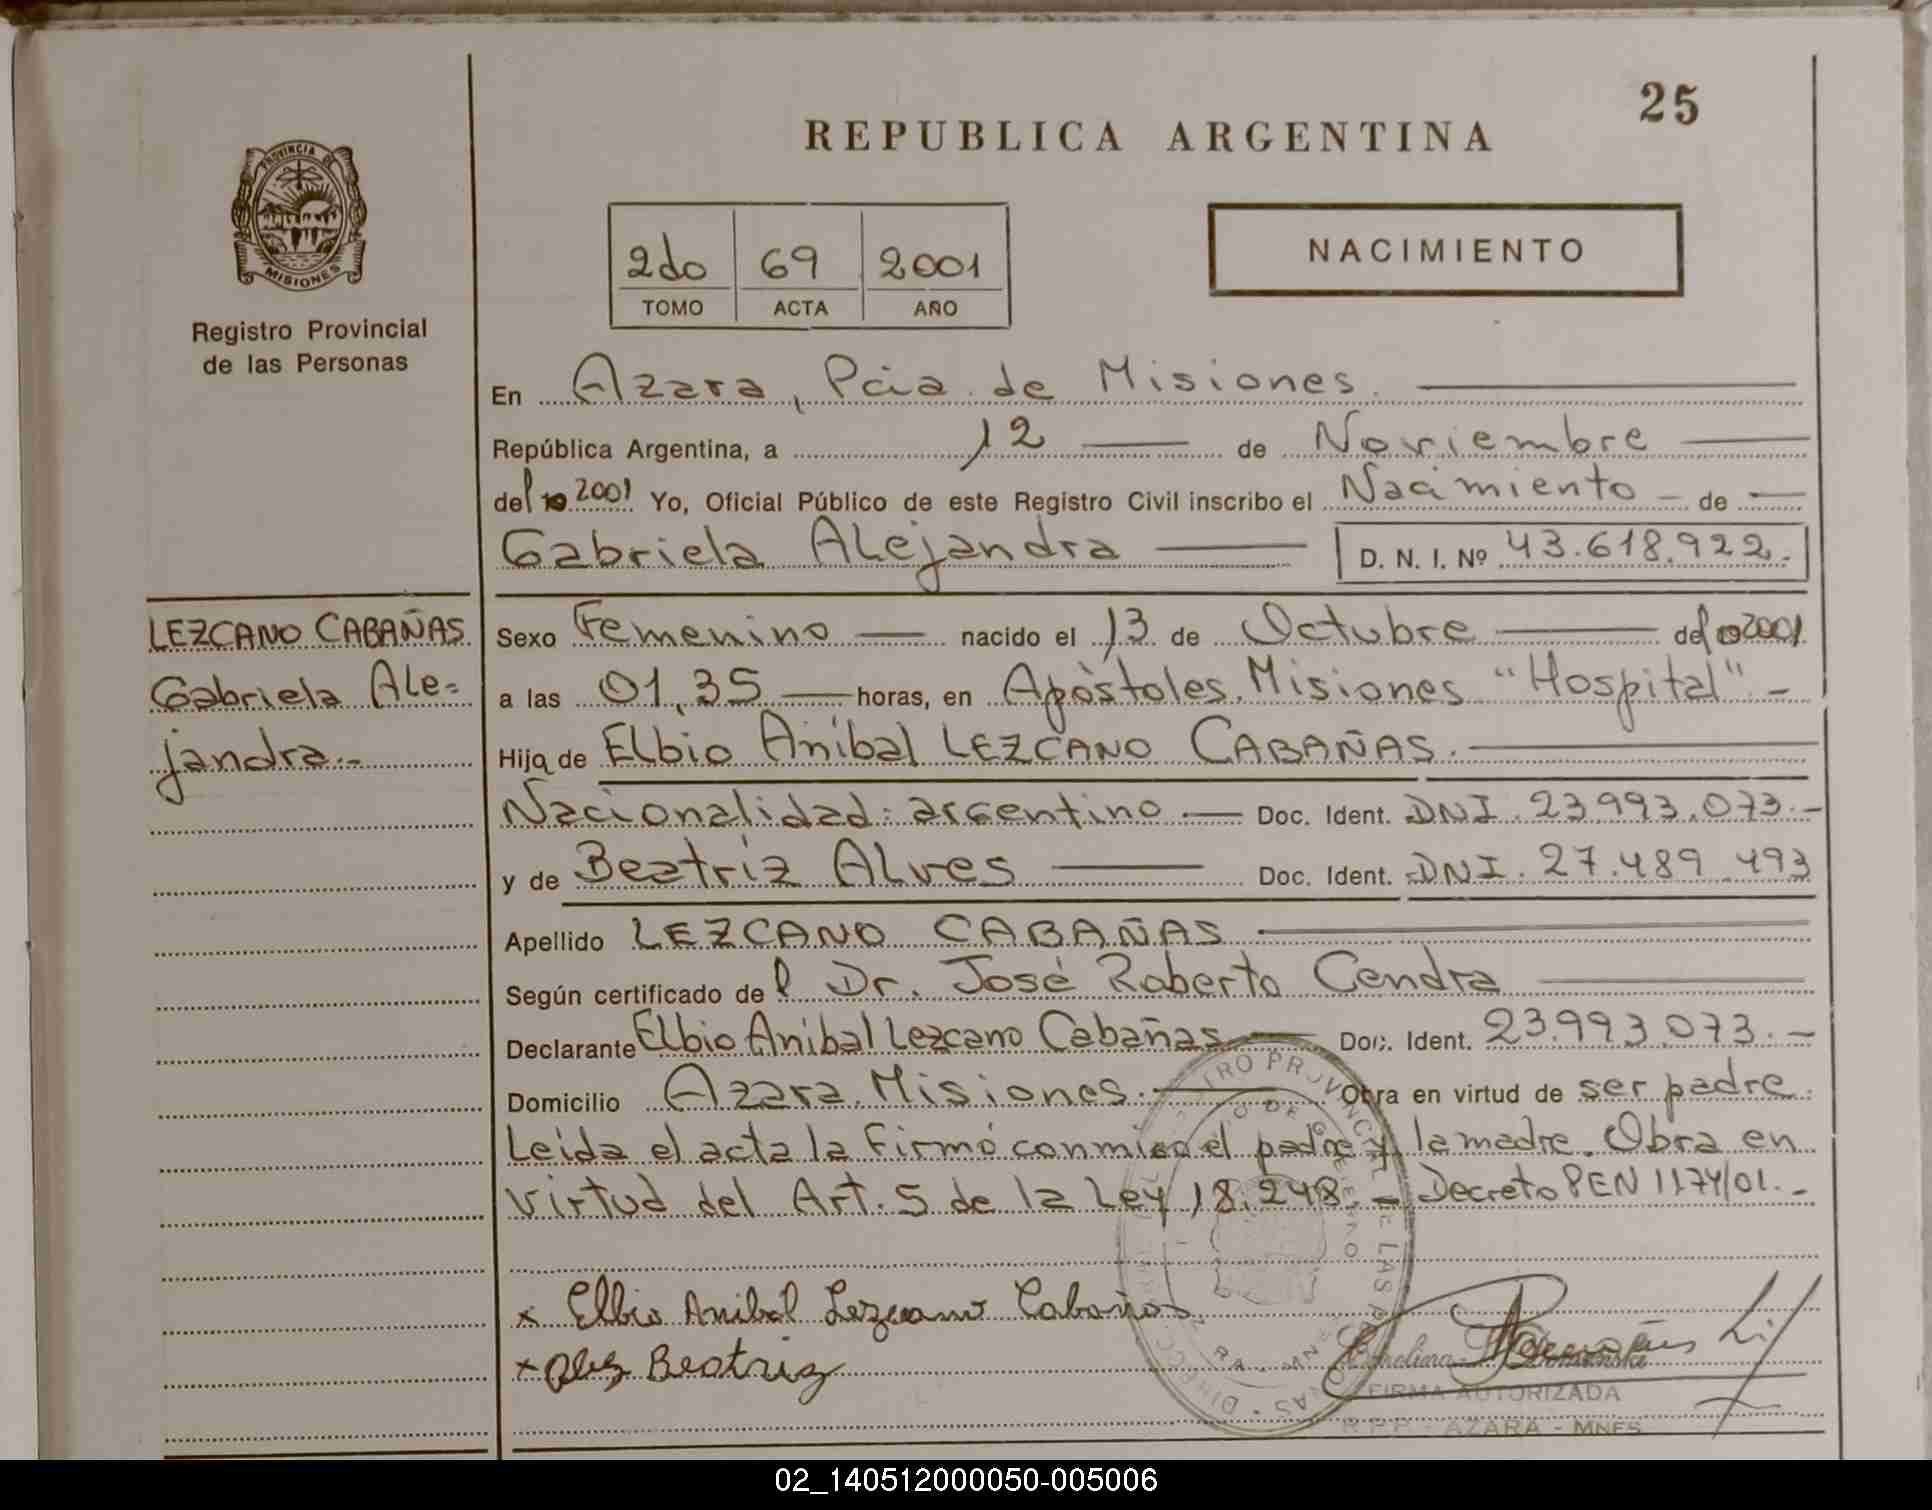 25
REPUBLICA ARGENTINA
PROVINCIA DE
MISIONES
Registro Provincial
de las Personas
2do 69 2001
TOMO ACTA AÑO
NACIMIENTO
En Azara, Pcia. de Misiones.
República Argentina, a 12 de Noviembre
del 2001 Yo, Oficial Público de este Registro Civil inscribo el Nacimiento de
Gabriela Alejandra D. N. I. Nº 43.618.922.-
LEZCANO CABAÑAS
Gabriela Ale=
jandra.-
Sexo Femenino nacido el 13 de Octubre del 2001
a las 01,35 horas, en Apóstoles. Misiones "Hospital" -
Hija de Elbio Aníbal LEZCANO CABAÑAS.
Nacionalidad: argentino Doc. Ident. DNI. 23.993.073.-
y de Beatríz Alves Doc. Ident. DNI. 27.489.493
Apellido LEZCANO CABAÑAS
Según certificado del Dr. José Roberto Cendra
Declarante Elbio Aníbal Lezcano Cabañas Doc. Ident. 23.993.073.-
Domicilio Azara. Misiones. Obra en virtud de ser padre.
Leída el acta la firmó conmigo el padre y la madre. Obra en
virtud del Art. 5 de la Ley 18.248.- Decreto PEN 1174/01.-
x Elbio Anibal Lezcano Cabañas
x Beatriz
FIRMA AUTORIZADA
R.P.P. - AZARA - MNES
02_140512000050-005006